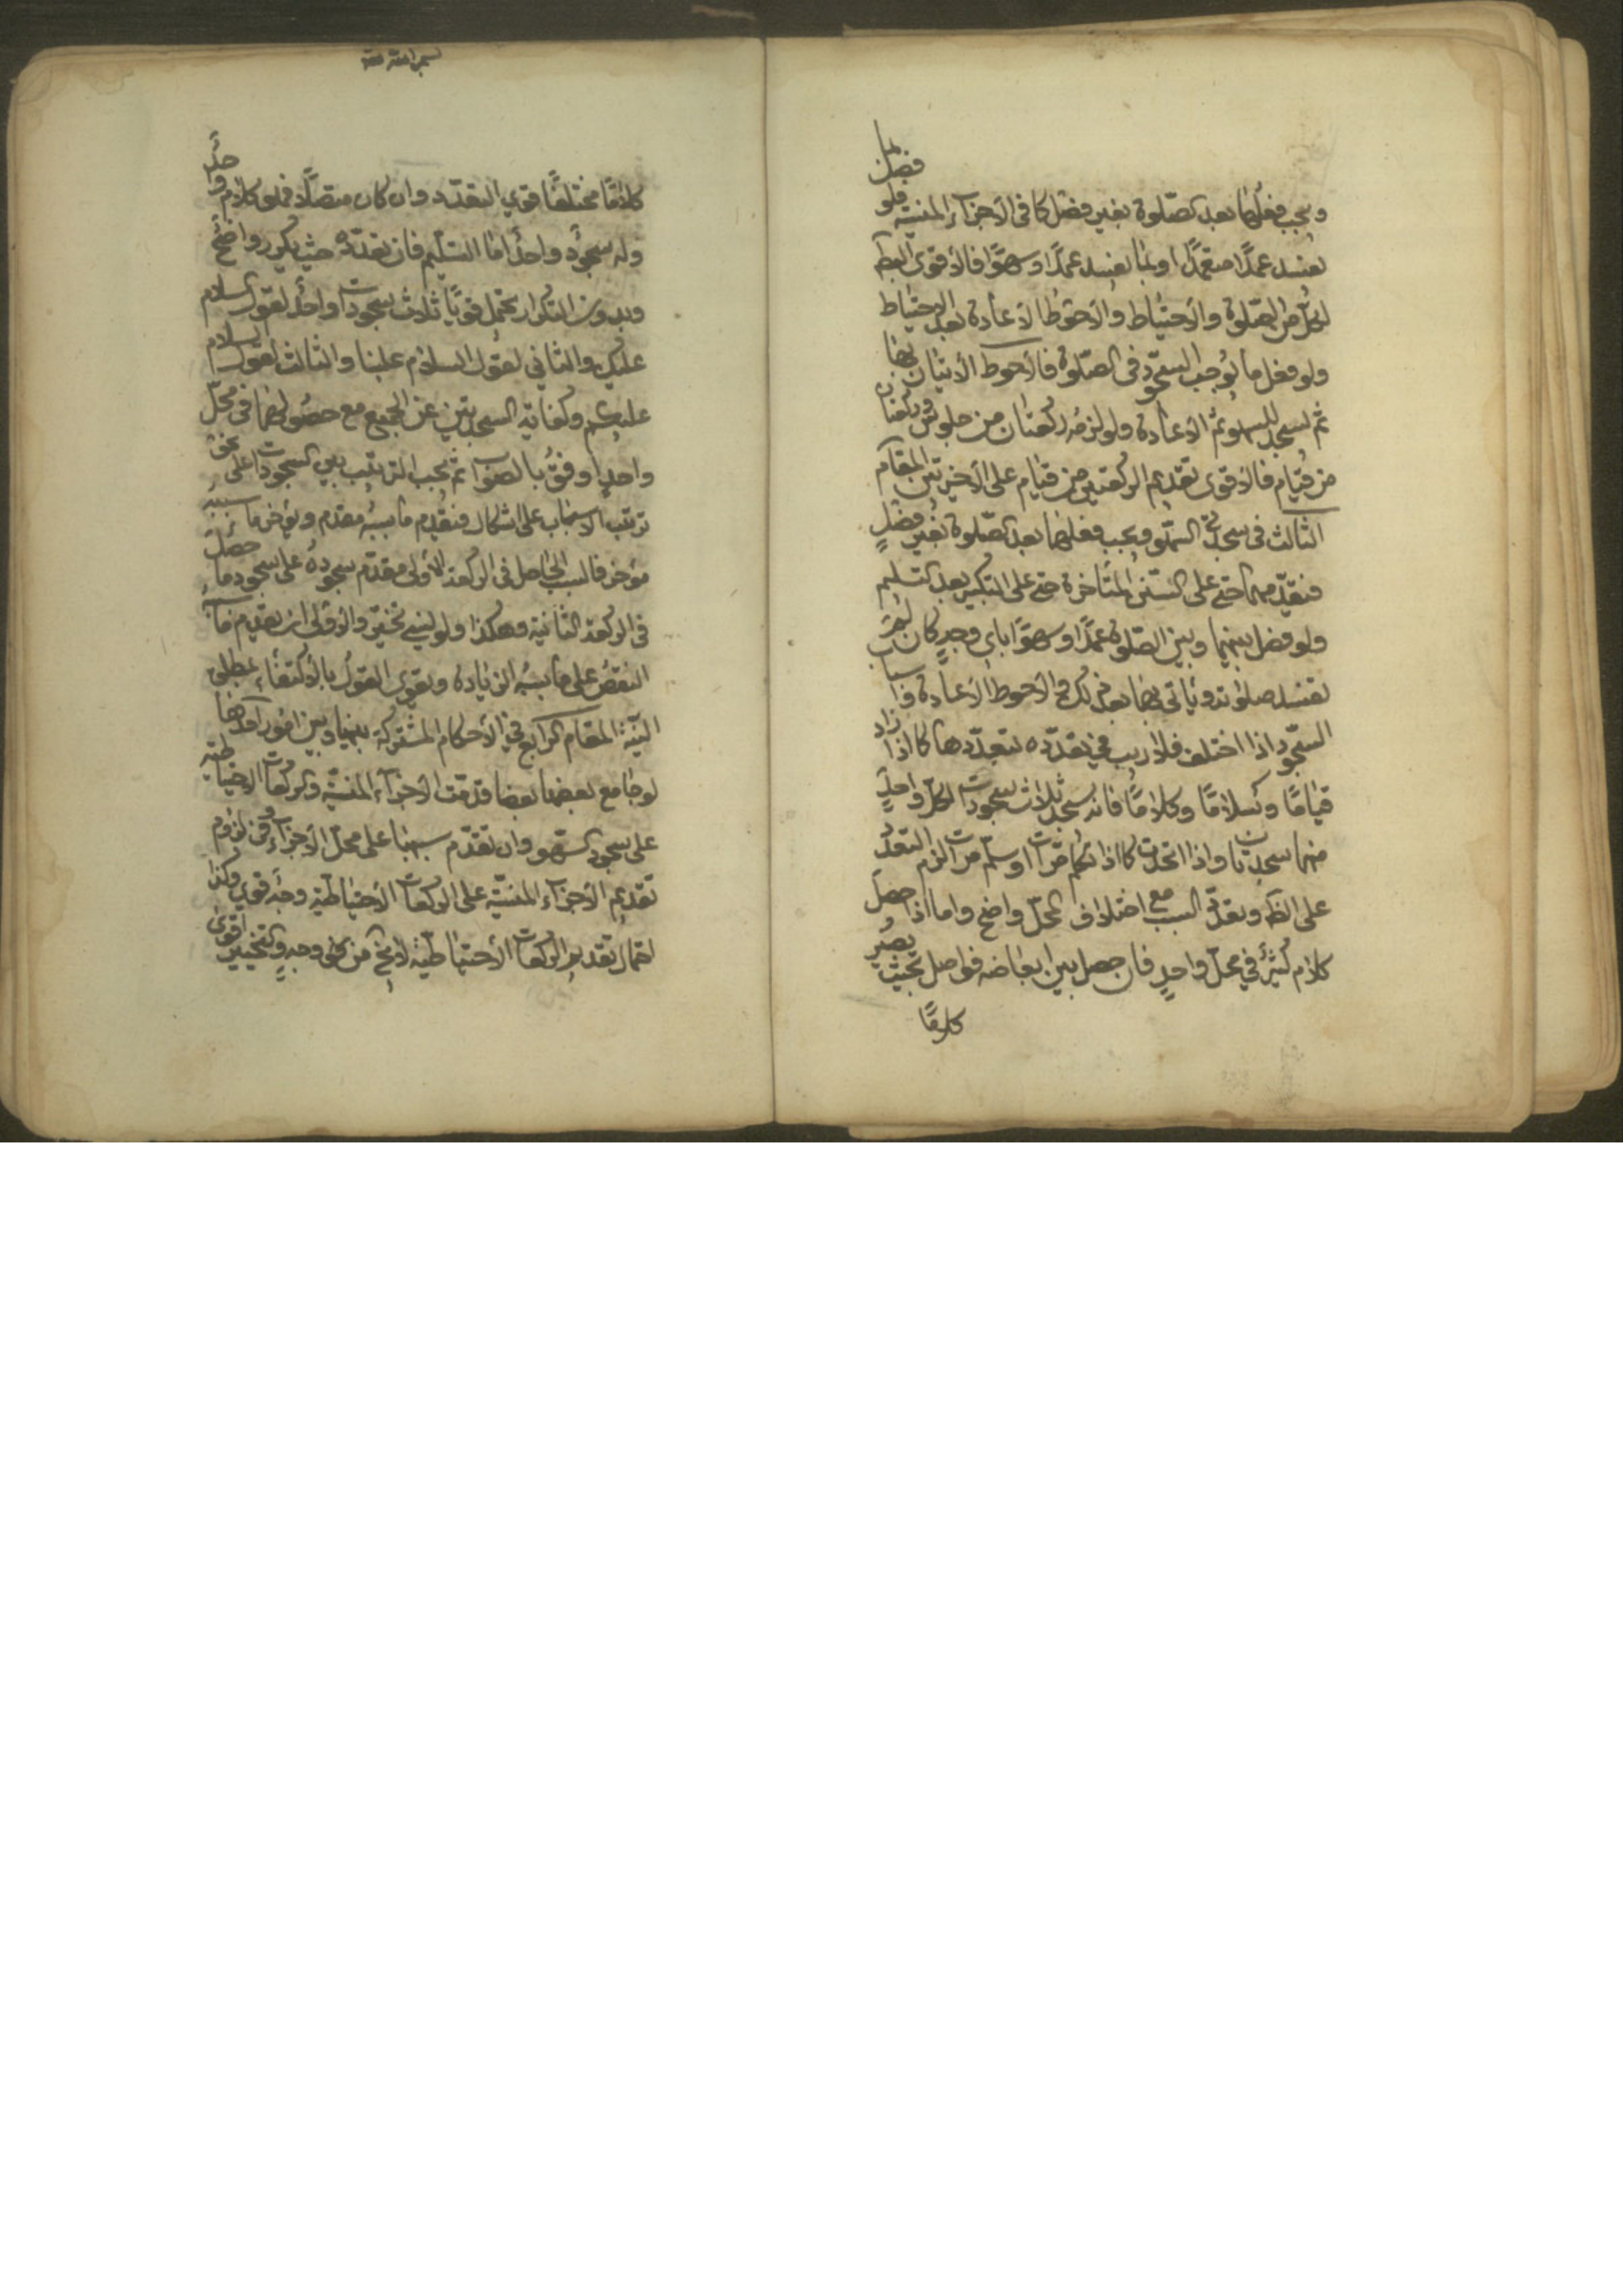 ويجب فعلها بعد الصّلوة بغير فصل كما في الأجزآء المنسيّة فلو فصل بما
يفسد عمدًا متعمدًا او بما يفسد عمدًا وسهوًا فالأقوى الصحّة
لكلّ من الصّلوة والأحتياط والأحوط الأعادة بعد الاحتياط
ولو فعل ما يوجب السجود في الصّلوة فالأحوط الأتيان بها
ثم يسجد للسهو ثم الأعادة ولو لزمه ركعتان من جلوس وركعتان
من قيام فالأقوى تقديم الركعتين من قيام على الأخيرتين المقام
الثالث في سجدتي السهو ويجب فعلهما بعد الصّلوة بغير فصلٍ
فيقدمهما حتى على السنن المتأخرة حتى على التكبير بعد التسليم
ولو فصل بينهما وبين الصّلوة عمدًا وسهوًا باي وجهٍ كان لم
تفسد صلوته وياتي بهما بعد ذلك والأحوط الأعادة واسباب
السّجود اذا اختلف فلا ريب في تعدّده بتعدّدها كما اذا زاد
قيامًا وسلامًا وكلامًا فانه يسجد ثلاث سجودات لكلّ واحدٍ
منهما سجدتان واذا اتحدت كما اذا تكلم مرّات او سلّم مرات لزم التعدد
على الظ وتعدّد السبب مع اختلاف المحلّ واضح واما اذا حصل
كلام كثير في محلّ واحدٍ فان حصل بين ابعاضه فواصل بحيث يصير
كلامًا
كلامًا مختلفًا قوي التعدّد وان كان متصلًا فهو كلام واحدٌ
وله سجود واحد امّا التسليم فان تعدّده حيث يكرر واضح
وبدون التكرار يحتمل قويًا ثلاث سجودات واحد لقول السلام
عليك والثاني لقول السلام علينا والثالث لقول السلام
عليكم وكفاية السجدتين عن الجميع مع حصولها في محلّ
واحدٍ اوفق بالصواب ثم يجب الترتيب بين السجودات على نحو
ترتيب الاسباب على اشكال فيقدم ما سببه مقدم ويؤخر ما سببه
مؤخر فالسبب الحاصل في الركعة الأولى مقدّم سجوده على سجود ما حصل
في الركعة الثانية وهكذا ولو نسي تخيّر والأولى ان يقدم ما سببه
النقص على ما سببه الزيادة ويقوى القول بالأكتفاء بمطلق
النيّة المقام الرابع في الأحكام المشتركة بينها وبين امور احدها
لو جامع بعضها بعضا قدمت الأجزآء المنسيّة والركعات الاحتياطيّه
على سجود السّهو وان تقدّم سببها على محلّ الأجزآء وفي لزوم
تقديم الأجزآء المنسيّة على الركعات الأحتياطيّة وجه قوي وكذا
احتمال تقديم الركعات الأحتياطيّة لا يخ من وجهٍ والتخيير اقوى